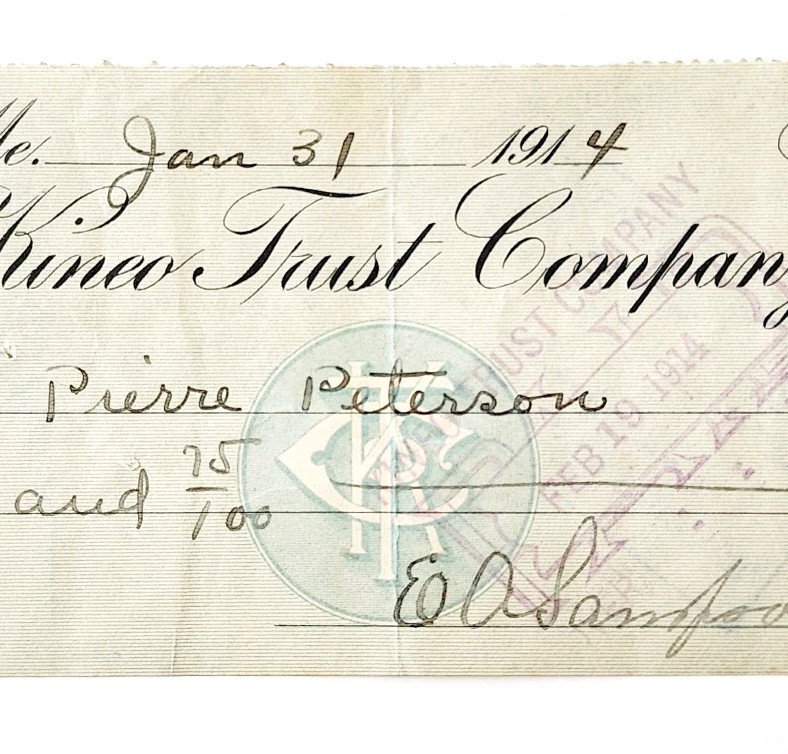 Me. Jan 31 1914
Kineo Trust Company
Pierre Peterson
and 75/100
E A Sampso
KINEO TRUST COMPANY
FEB 19 1914